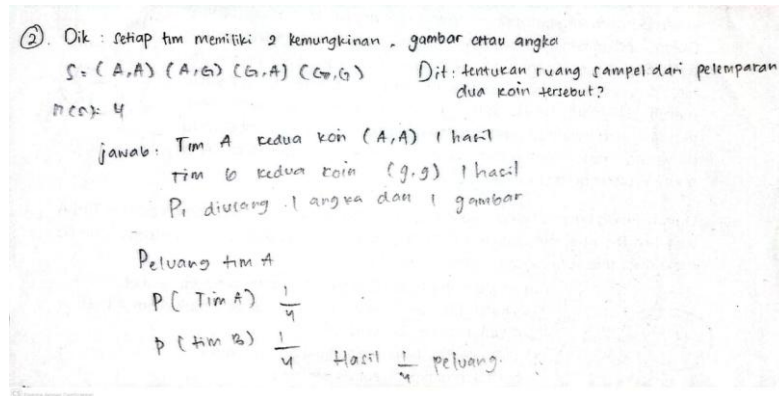 ②. Dik : setiap tim memiliki 2 kemungkinan, gambar atau angka
S : (A,A) (A,G) (G,A) (G,G)
Dit : tentukan ruang sampel dari pelemparan
dua koin tersebut?
n(s) = 4
jawab : Tim A kedua koin (A,A) 1 hasil
Tim G kedua koin (g,g) 1 hasil
P, diulang 1 angka dan 1 gambar
Peluang tim A
P ( Tim A) 1/4
P (tim B) 1/4 Hasil 1/4 peluang.